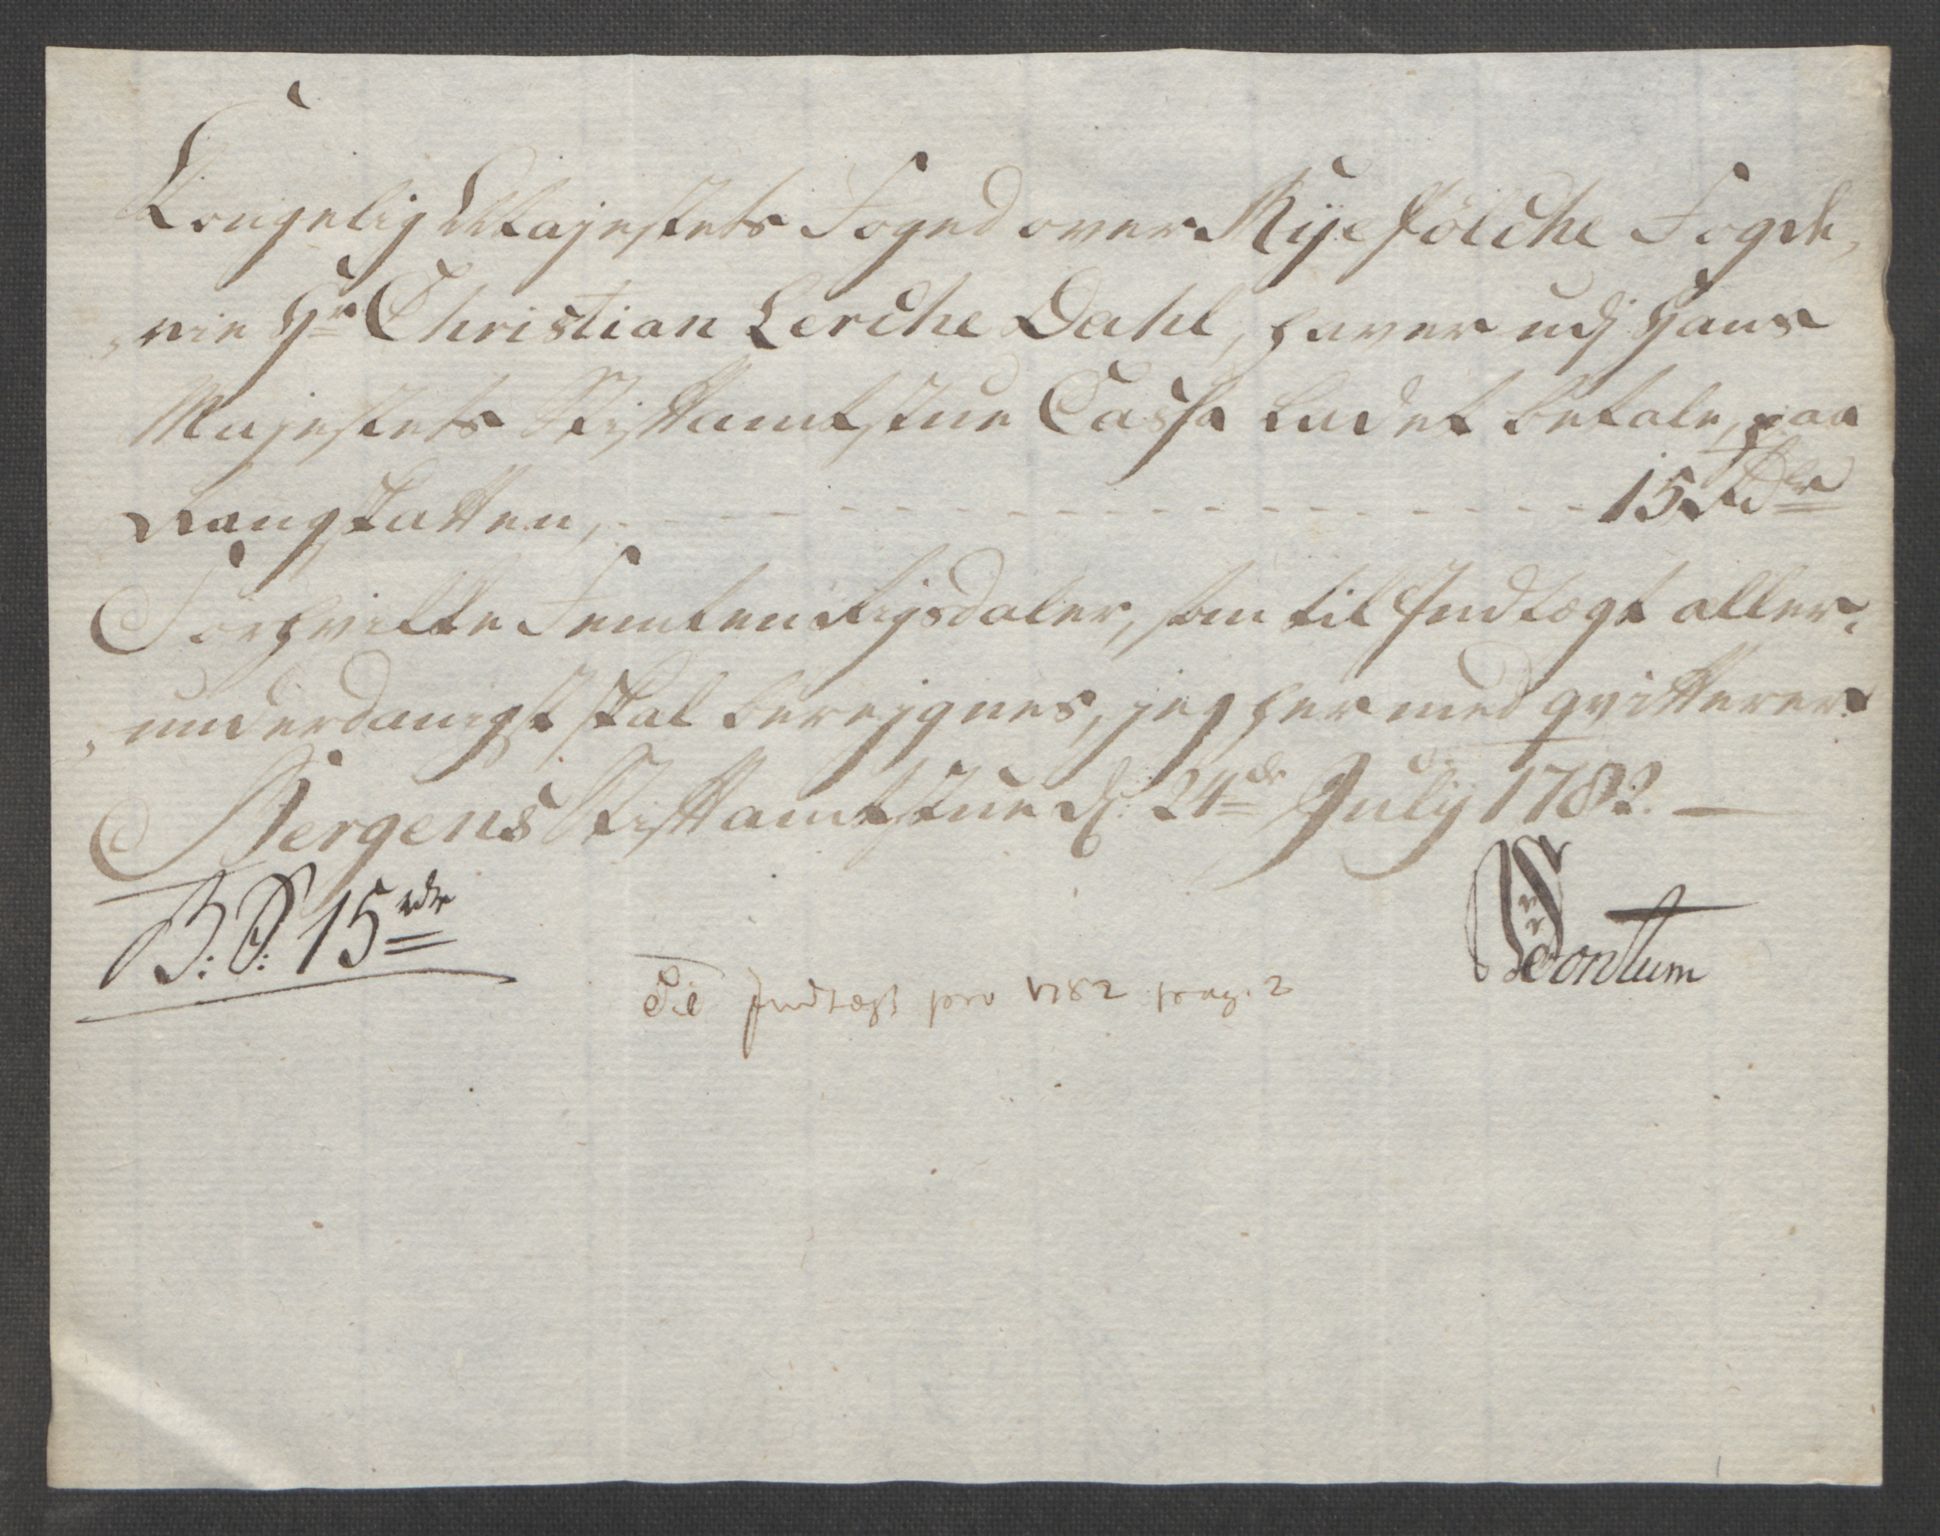 Kongelig Majestets Foged over Ryefölche Fogde,
,rie Hr Christian Lerche Dahl, haver udj Hans
Majestets Stiftamtstue Cassa ladet betale, paa
Rangskatten, - - - - - - - - - - - - 15 Rdlr
Forhvilke Femten Rigsdaler, som til Indtægt aller,
,underdanigst skal beregnes, jeg her med qvitterer.
Bergens Stiftamtstue d: 24de Julij 1782. —
B: S: 15 rdr
Fontum
Til Indtægt pro 1782 pag. 2